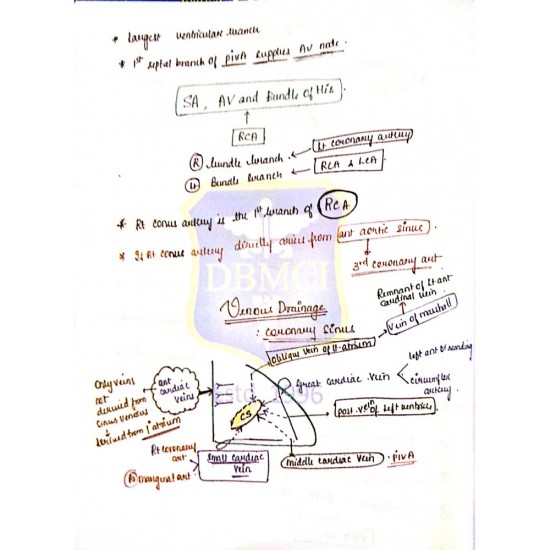 * Largest ventricular branch
* 1st septal branch of PIVA supplies AV node.
SA, AV and Bundle of His.
RCA
(R) bundle branch. Lt coronary artery
(L) Bundle branch RCA & LCA
* Rt conus artery is the 1st branch of RCA
* If Rt conus artery directly arises from ant aortic sinus
3rd coronary art
DBMCI
Remnant of Lt ant
cardinal vein
Venous Drainage
: coronary sinus
Vein of marshall
oblique vein of lt. atrium
left ant descending
Great cardiac vein
circumflex
artery
only veins
not
derived from
sinus venosus
derived from atrium
ant
cardiac
veins
Estd. 1996
CS
post. vein of Left ventricles
Rt coronary
art
(R) marginal art
Small cardiac
vein
middle cardiac vein . PIVA